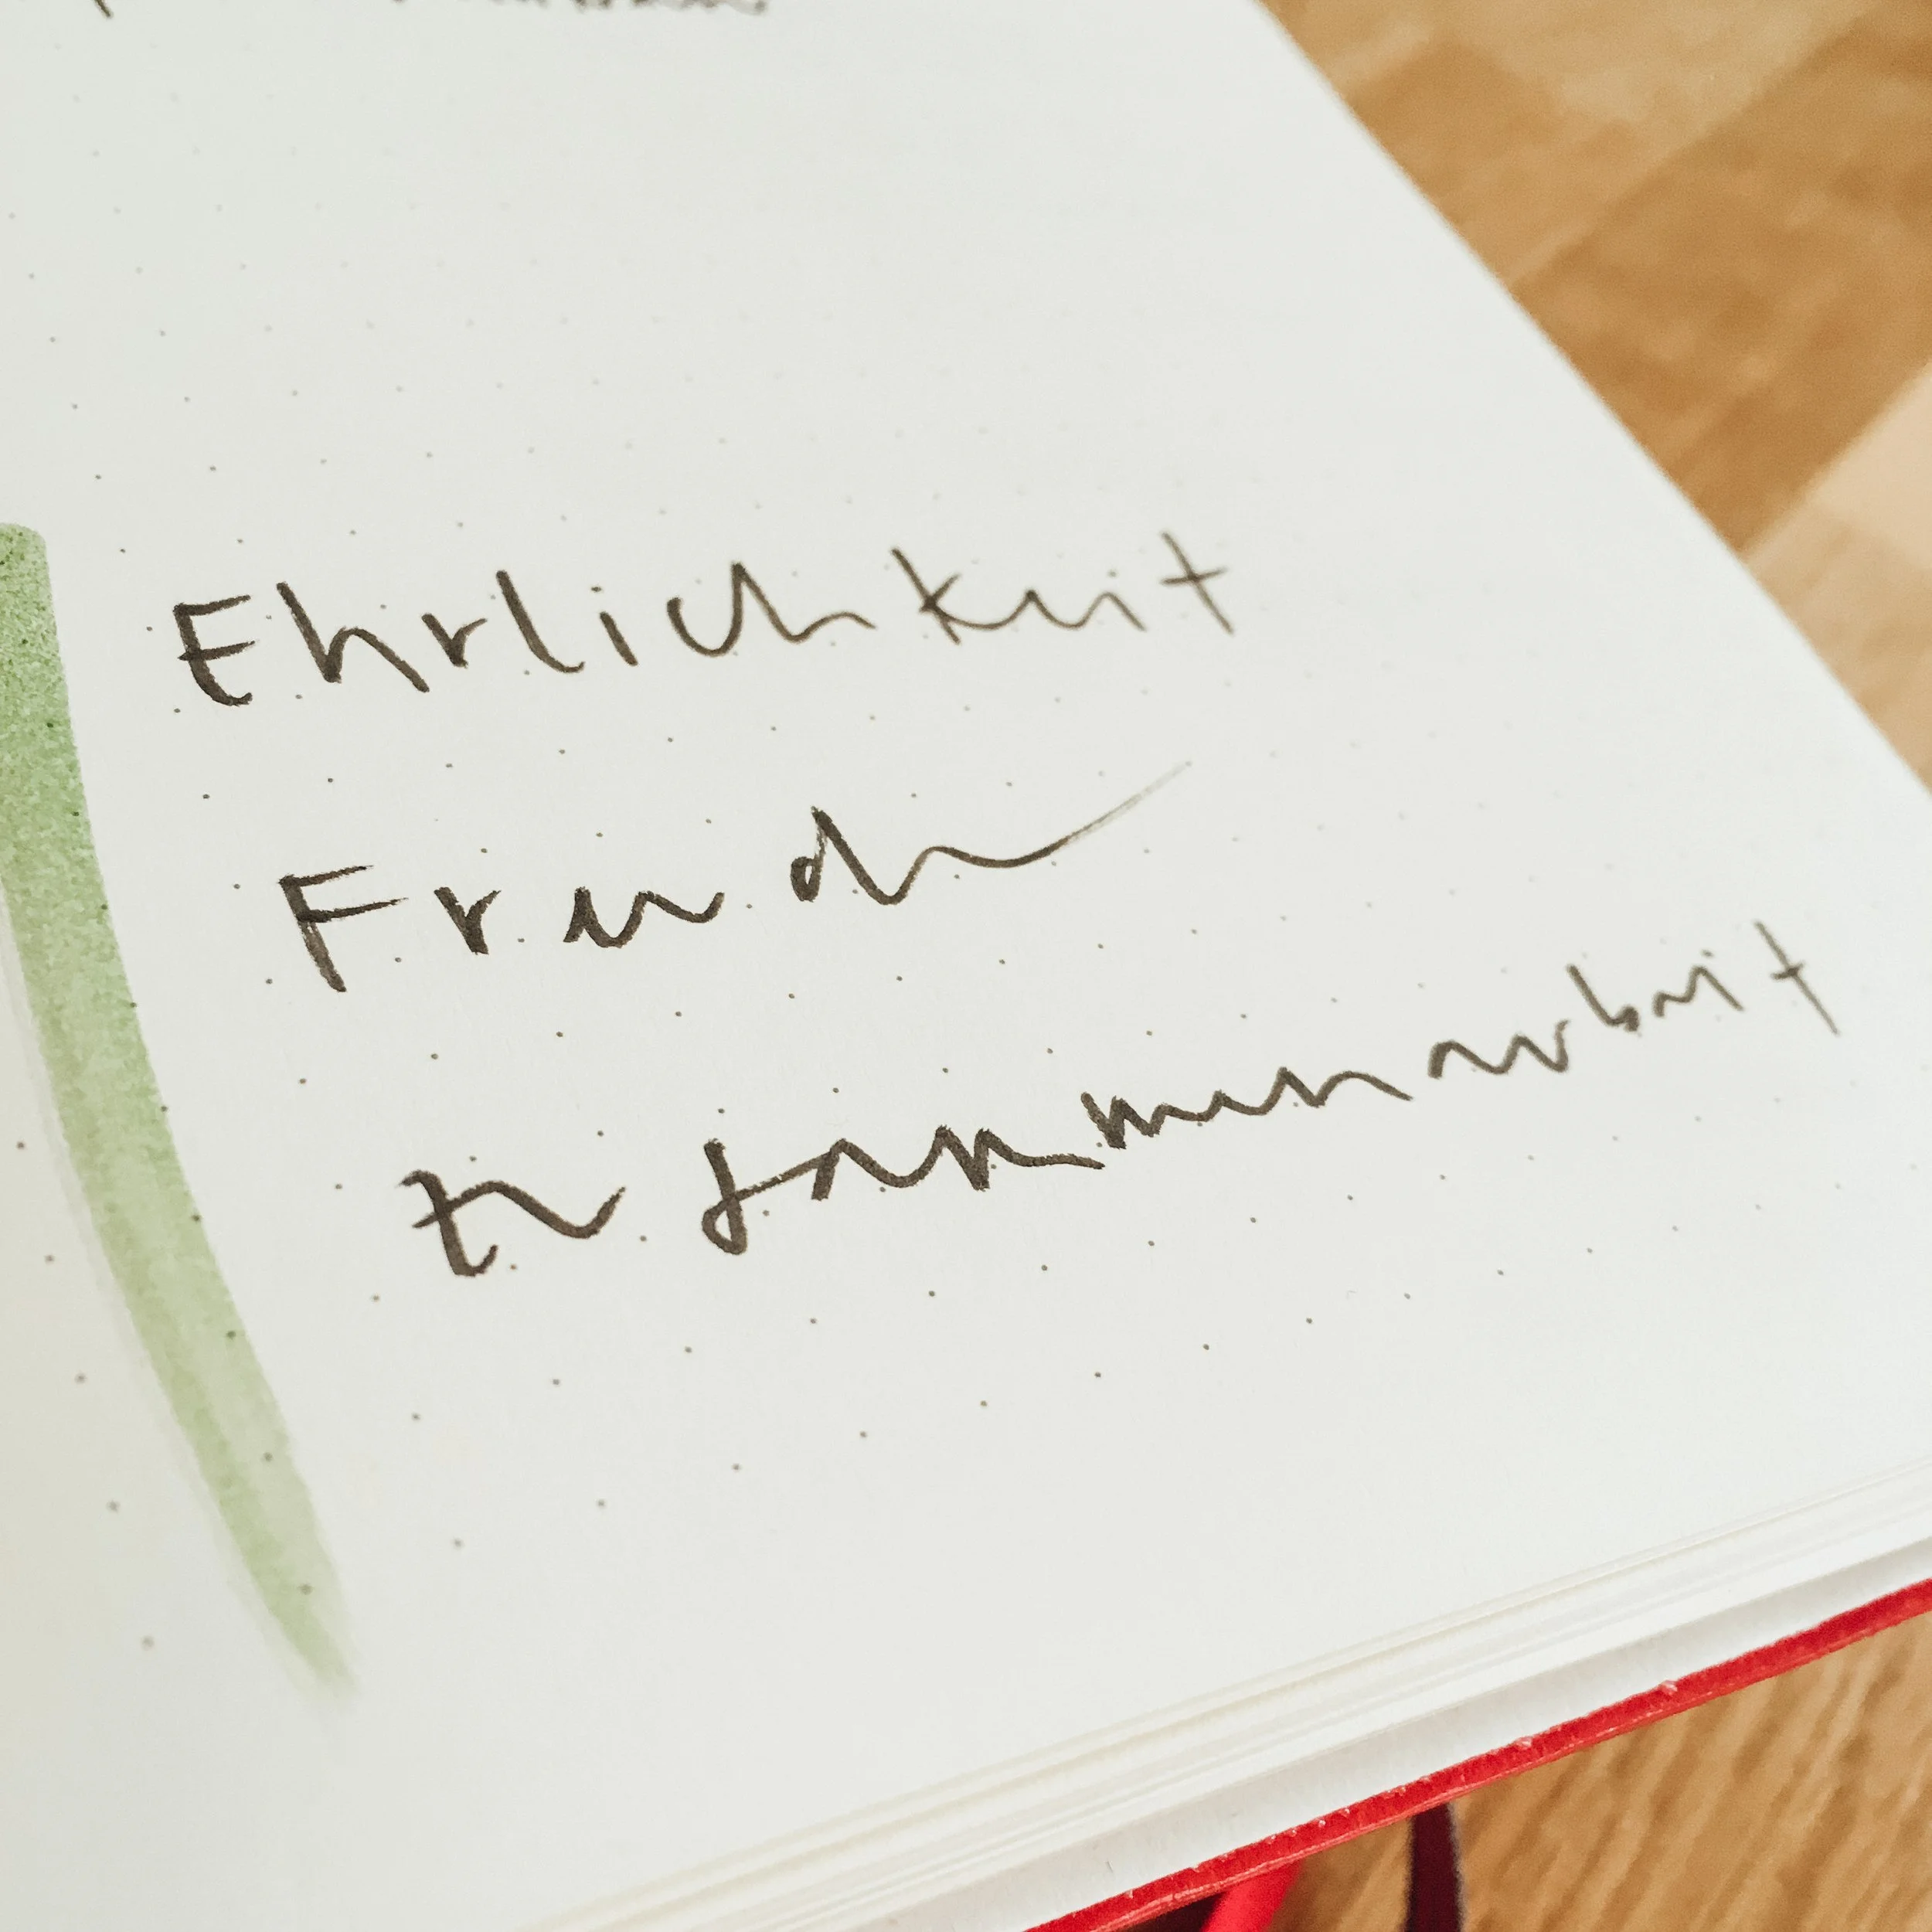 Ehrlichkeit
Freude
Zusammenarbeit